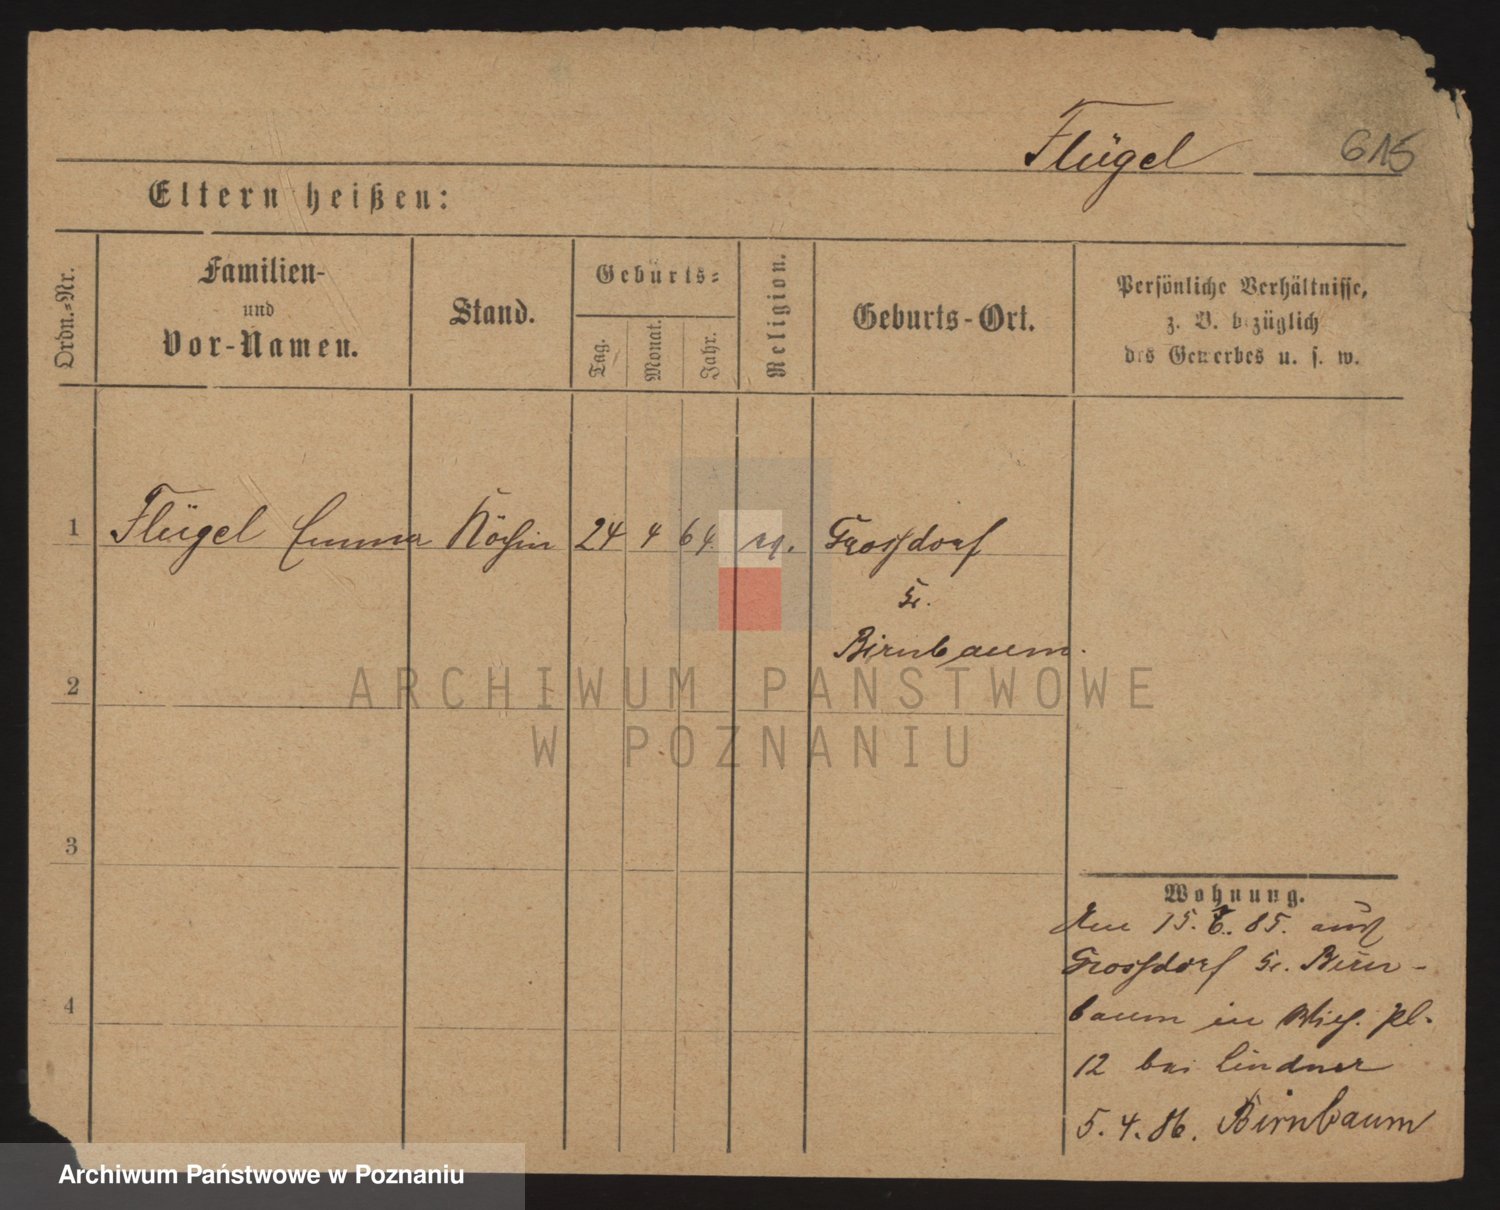 Flügel 615
Eltern heißen:
Ordn.-Nr.
Familien-
und
Vor-Namen.
Stand.
Geburts-
Tag.
Monat.
Jahr.
Religion.
Geburts-Ort.
Persönliche Verhältnisse,
z. B. bezüglich
des Gewerbes u. s. w.
1 Flügel Emma Köchin 24 4 64 Grossdorf
Kr.
Birnbaum.
2
3
4
Wohnung.
Am 15. 85. aus
Grossdorf Kr. Birn-
baum in pl.
12 bei Lindner
5. 4. 86. Birnbaum
ARCHIWUM PAŃSTWOWE
W POZNANIU
Archiwum Państwowe w Poznaniu